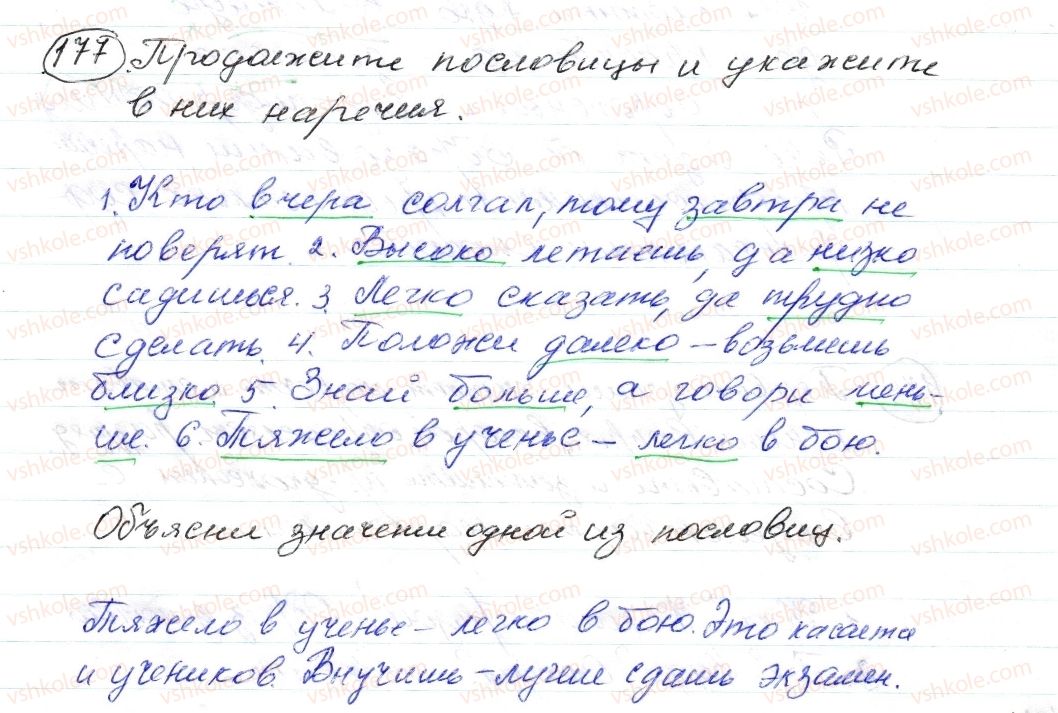 177. Продолжите пословицы и укажите
в них наречия.
1. Кто вчера солгал, тому завтра не
поверят. 2. Высоко летаешь, да низко
садишься. 3. Легко сказать, да трудно
сделать. 4. Положи далеко – возьмешь
близко 5. Знай больше, а говори мень-
ше. 6. Тяжело в ученье – легко в бою.
Объясни значение одной из пословиц.
Тяжело в ученье – легко в бою. Это касаета
и учеников. Внучишь – лучше сдашь экзамен.